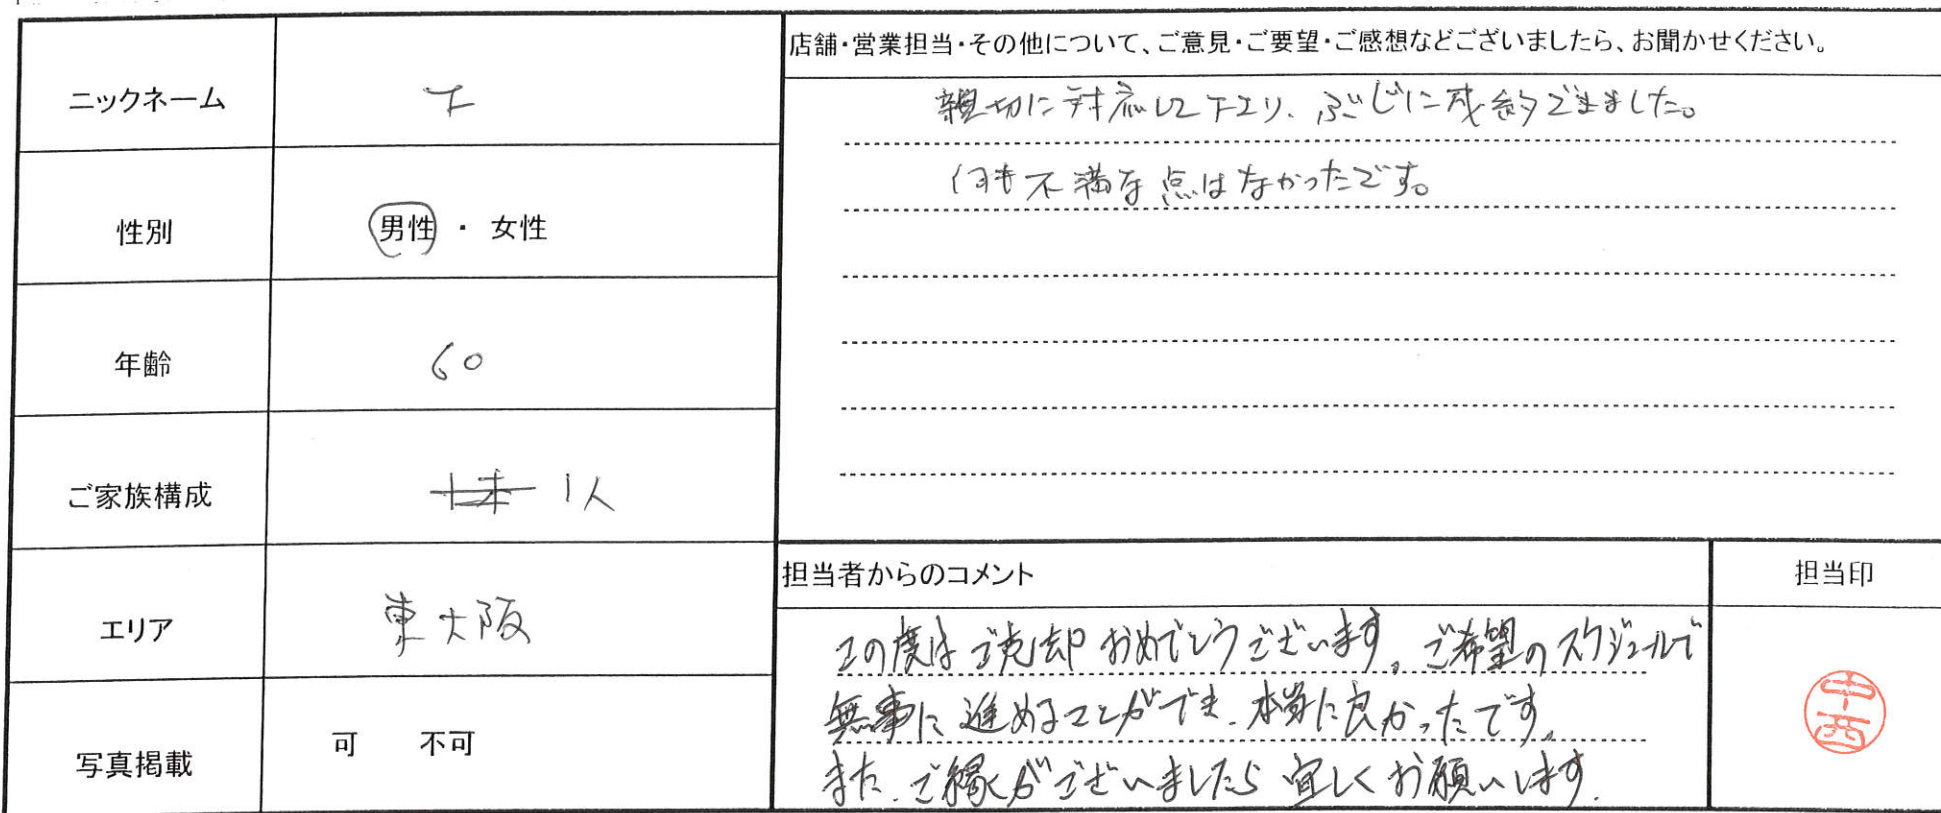 ニックネーム
T
性別
男性 ・ 女性
年齢
60
ご家族構成
1人
エリア
東大阪
写真掲載
可 不可
店舗・営業担当・その他について、ご意見・ご要望・ご感想などございましたら、お聞かせください。
親切に対応して下さり、ぶじに成約できました。
何も不満な点はなかったです。
担当者からのコメント
この度はご売却おめでとうございます。ご希望のスケジュールで
無事に進めることができ、本当に良かったです。
また、ご縁がございましたら宜しくお願いします。
担当印
中西